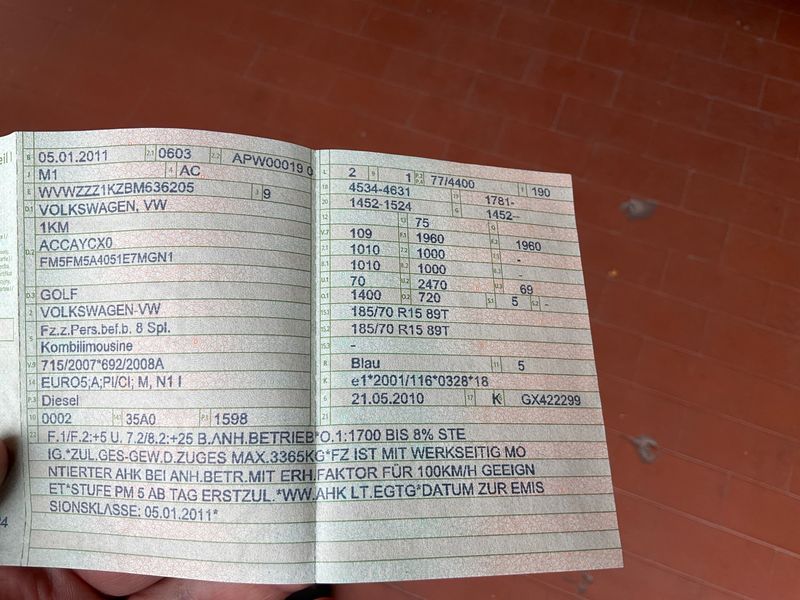 B 05.01.2011 2.1 0603 2.2 APW00019 0
J M1 4 AC
E WVWZZZ1KZBM636205 3 9
D.1 VOLKSWAGEN, VW
1KM
D.2 ACCAYCX0
FM5FM5A4051E7MGN1
D.3 GOLF
2 VOLKSWAGEN-VW
5 Fz.z.Pers.bef.b. 8 Spl.
Kombilimousine
V.9 715/2007*692/2008A
14 EURO5;A;PI/CI; M, N1 I
P.3 Diesel
10 0002 14.1 35A0 P.1 1598
L 2 9 1 P.2 P.4 77/4400 T 190
18 4534-4631 19 1781-
20 1452-1524 G 1452-
12 13 75 Q
V.7 109 F.1 1960 F.2 1960
7.1 1010 7.2 1000 7.3 -
8.1 1010 8.2 1000 8.3 -
U.1 70 U.2 2470 U.3 69
O.1 1400 O.2 720 S.1 5 S.2 -
15.1 185/70 R15 89T
15.2 185/70 R15 89T
15.3 -
R Blau 11 5
K e1*2001/116*0328*18
6 21.05.2010 17 K 16 GX422299
21
22 F.1/F.2:+5 U. 7.2/8.2:+25 B.ANH.BETRIEB*O.1:1700 BIS 8% STE
IG.*ZUL.GES-GEW.D.ZUGES MAX.3365KG*FZ IST MIT WERKSEITIG MO
NTIERTER AHK BEI ANH.BETR.MIT ERH.FAKTOR FÜR 100KM/H GEEIGN
ET*STUFE PM 5 AB TAG ERSTZUL.*WW.AHK LT.EGTG*DATUM ZUR EMIS
SIONSKLASSE: 05.01.2011*